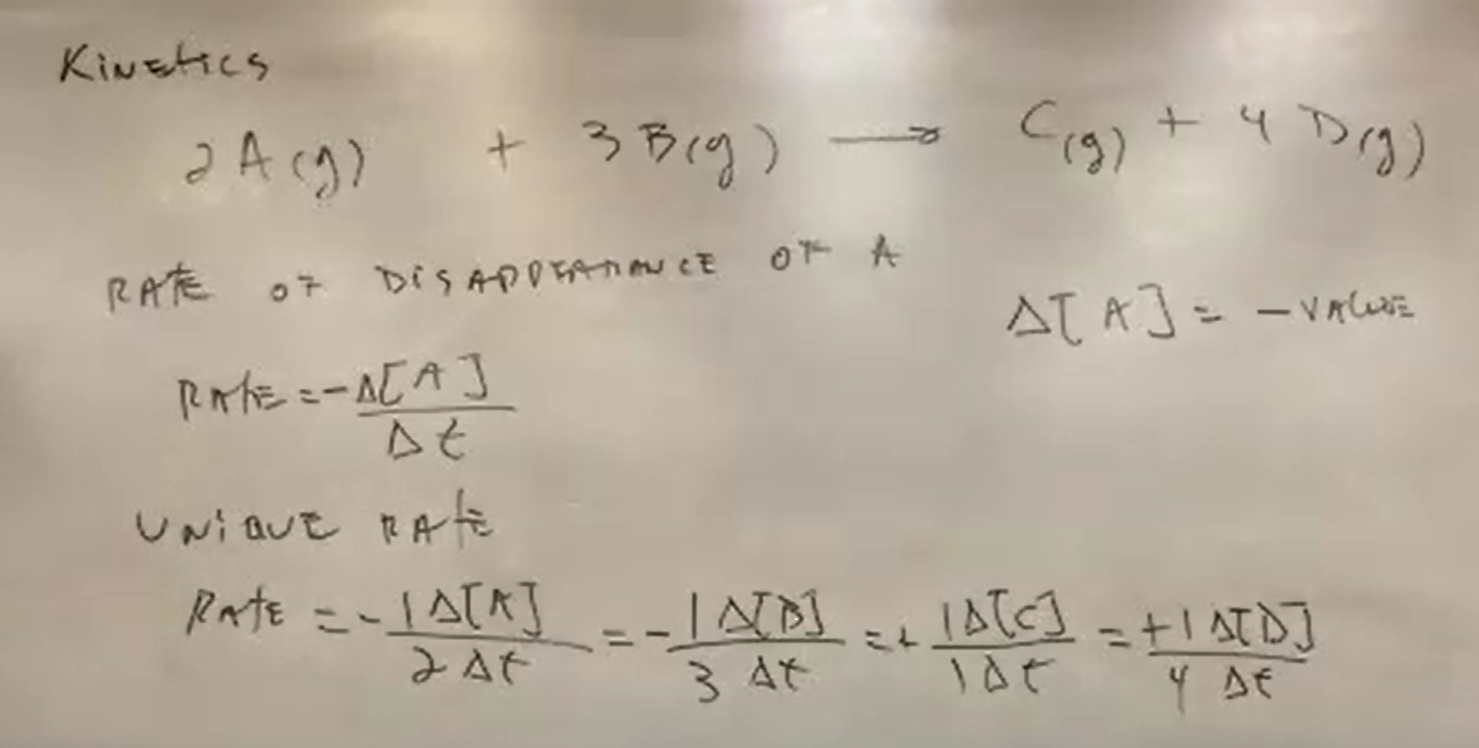 Kinetics
2A(g) + 3B(g) → C(g) + 4D(g)
RATE OF DISAPPEARANCE OF A
Δ[A] = -VALUE
RATE = -Δ[A]/Δt
UNIQUE RATE
RATE = -1Δ[A]/2Δt = -1Δ[B]/3Δt = +1Δ[C]/1Δt = +1Δ[D]/4Δt